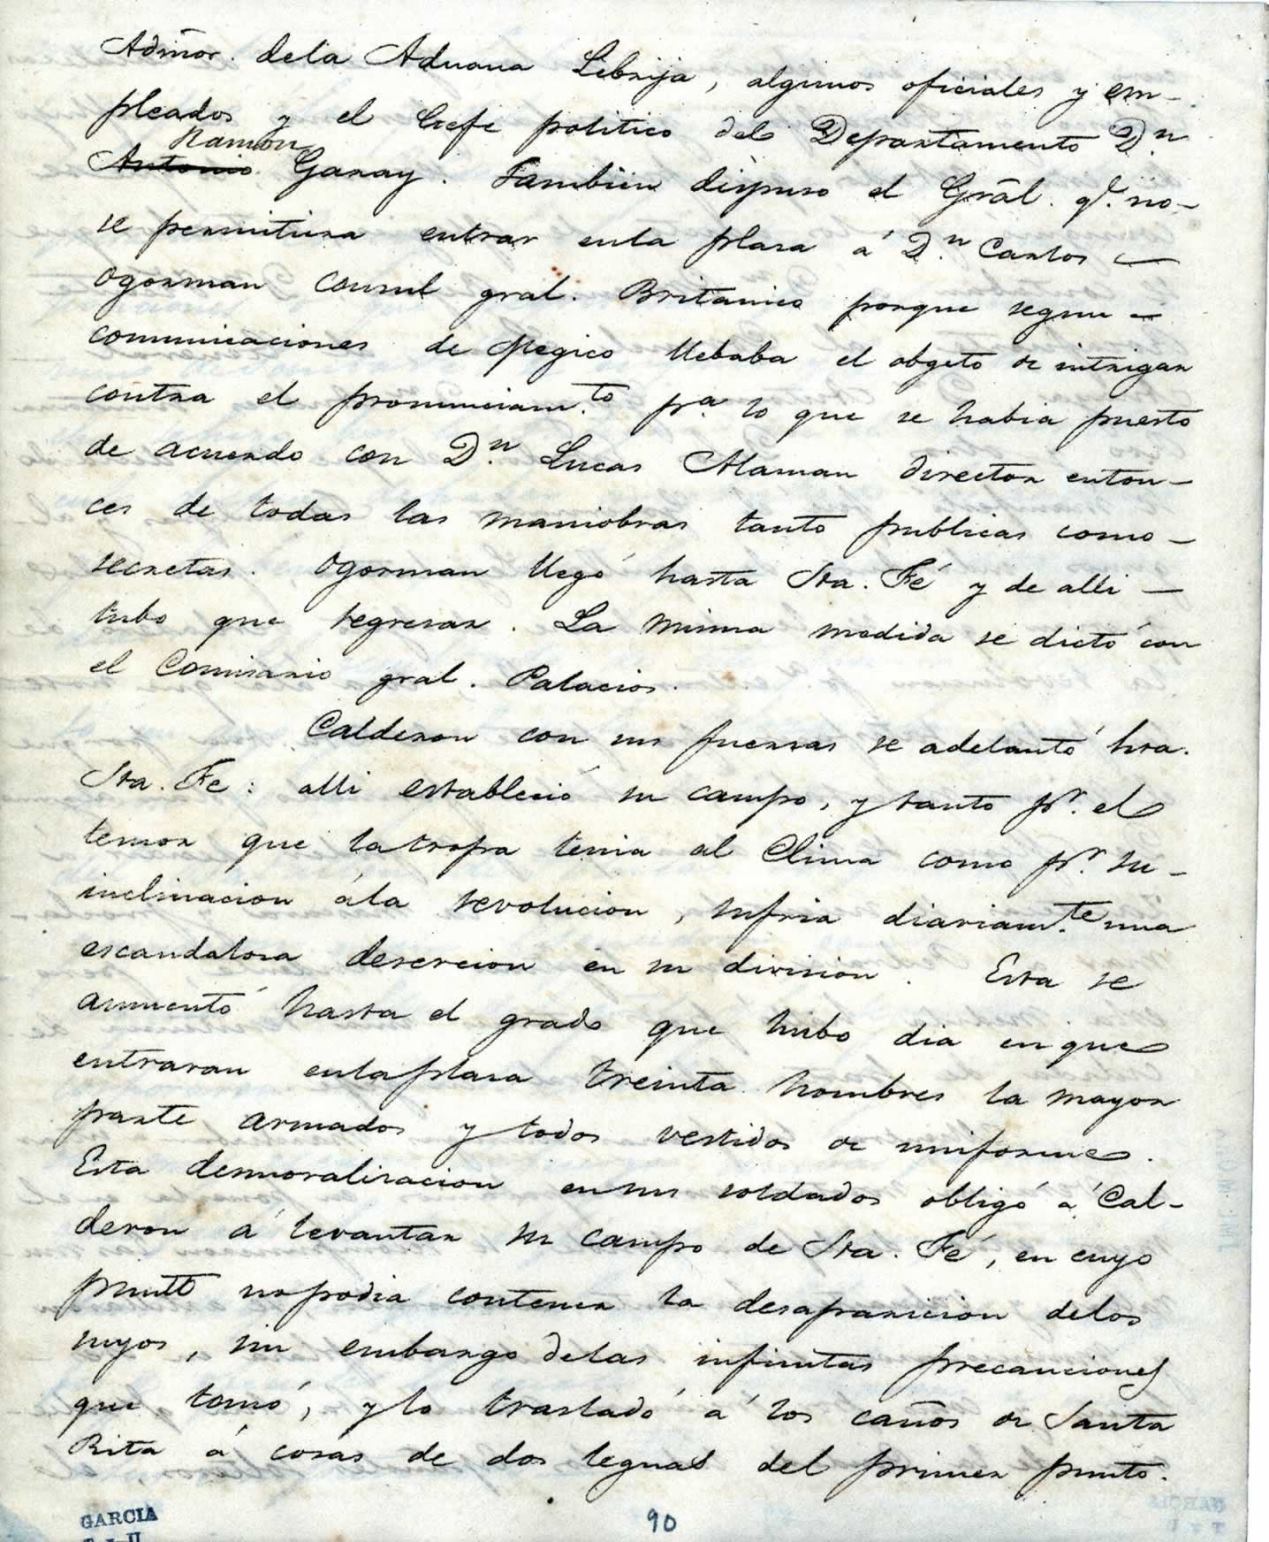 Admōr. dela Aduana Lebrija, algunos oficiales y em-
pleados y el Gefe politico del Departamento Dn.
Ramon
Antonio Garay. Tambien dispuso el Grāl. qe. no-
se permitiera entrar enla plasa á Dn. Carlos —
Ogorman Consul gral. Britanico porque segun —
comunicaciones de Megico llebaba el obgeto de intrigar
contra el pronunciam.to pa. lo que se habia puesto
de acuerdo con Dn. Lucas Alaman director enton-
ces de todas las maniobras tanto publicas como-
secretas. Ogorman llegó hasta Sta. Fé y de alli —
tubo que regresar. La misma medida se dictó con
el Comisario gral. Palacios.
Calderon con sus fuersas se adelantó hta.
Sta. Fe: alli estableció su campo, y tanto pr. el
temor que latropa tenia al Clima como pr. su-
inclinacion ála revolucion, sufria diariam.te una
escandalosa desercion en su division. Esta se
aumentó hasta el grado que hubo dia en que
entraran enlaplasa treinta hombres la mayor
parte armados y todos vestidos de uniforme.
Esta desmoralisacion ensus soldados obligó á Cal-
deron á levantar su campo de Sta. Fé, en cuyo
punto nopodia contener la desaparicion delos
suyos, sin embargo delas infinitas precauciones
que tomó, y lo trasladó á los caños de Santa
Rita á cosas de dos leguas del primer punto.
GARCIA
90